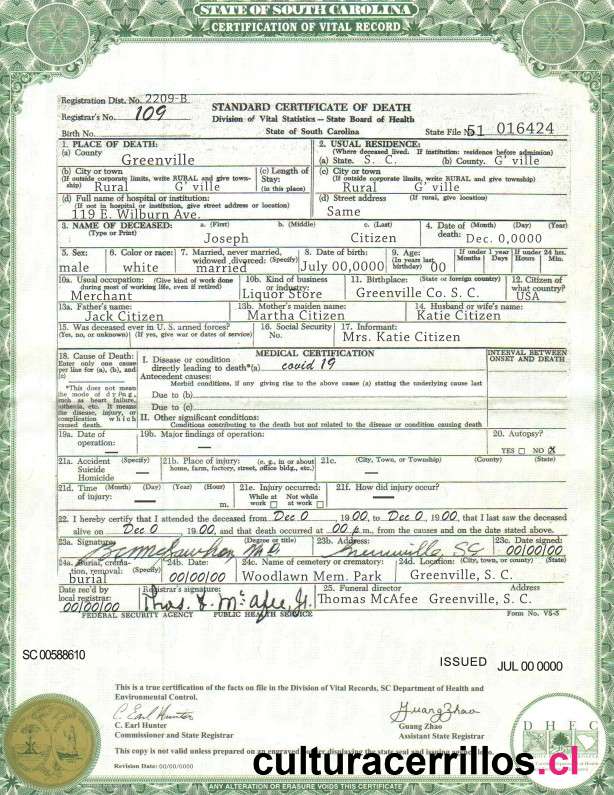 STATE OF SOUTH CAROLINA
CERTIFICATION OF VITAL RECORD
Registration Dist. No. 2209-B
STANDARD CERTIFICATE OF DEATH
Registrar's No. 109
Division of Vital Statistics — State Board of Health
Birth No.
State of South Carolina
State File No. 51 016424
1. PLACE OF DEATH:
(a) County
Greenville
2. USUAL RESIDENCE:
(Where deceased lived. If institution: residence before admission)
(a) State. S. C. (b) County. G' ville
(b) City or town
(If outside corporate limits, write RURAL and give township)
Rural G' ville
(c) Length of Stay:
(in this place)
(c) City or town
(If outside corporate limits, write RURAL and give township)
Rural G' ville
(d) Full name of hospital or institution:
(If not in hospital or institution, give street address or location)
119 E. Wilburn Ave.
(d) Street address (If rural, give location)
Same
3. NAME OF DECEASED:
(Type or Print)
a. (First) b. (Middle) c. (Last)
Joseph Citizen
4. Date of death: (Month) (Day) (Year)
Dec. 0,0000
5. Sex:
male
6. Color or race:
white
7. Married, never married, widowed, divorced: (Specify)
married
8. Date of birth?
July 00,0000
9. Age:
(In years last birthday) 00
If under 1 year
Months Days
If under 24 hrs.
Hours Min.
10a. Usual occupation: (Give kind of work done during most of working life, even if retired)
Merchant
10b. Kind of business or industry:
Liquor Store
11. Birthplace: (State or foreign country)
Greenville Co. S. C.
12. Citizen of what country?
USA
13a. Father's name:
Jack Citizen
13b. Mother's maiden name:
Martha Citizen
14. Husband or wife's name:
Katie Citizen
15. Was deceased ever in U. S. armed forces?
(Yes, no, or unknown) (If yes, give war or dates of service)
16. Social Security No.
17. Informant:
Mrs. Katie Citizen
18. Cause of Death:
Enter only one cause per line for (a), (b), and (c)
*This does not mean the mode of dying, such as heart failure, asthenia, etc. It means the disease, injury, or complication which caused death.
MEDICAL CERTIFICATION
I. Disease or condition directly leading to death*(a) covid 19
Antecedent causes:
Morbid conditions, if any, giving rise to the above cause (a) stating the underlying cause last
Due to (b)
Due to (c)
II. Other significant conditions:
Conditions contributing to the death but not related to the disease or condition causing death
INTERVAL BETWEEN ONSET AND DEATH
19a. Date of operation:
19b. Major findings of operation:
20. Autopsy?
YES NO X
21a. Accident (Specify)
Suicide
Homicide
21b. Place of injury: (e. g., in or about home, farm, factory, street, office bldg., etc.)
21c. (City, Town, or Township) (County) (State)
21d. Time (Month) (Day) (Year) (Hour)
of injury: m.
21e. Injury occurred:
While at work Not while at work
21f. How did injury occur?
22. I hereby certify that I attended the deceased from Dec 0 1900, to Dec 0, 1900, that I last saw the deceased
alive on Dec 0 1900, and that death occurred at 00 p m., from the causes and on the date stated above.
23a. Signature (Degree or title)
M.D.
23b. Address:
Greenville, SC
23c. Date signed:
00|00|00
24a. Burial, cremation, removal: (Specify)
burial
24b. Date:
00|00|00
24c. Name of cemetery or crematory:
Woodlawn Mem. Park
24d. Location: (City, town, or county) (State)
Greenville, S. C.
Date rec'd by local registrar:
00|00|00
Registrar's signature:
Thos. F. McAfee, Jr.
25. Funeral director Address
Thomas McAfee Greenville, S. C.
FEDERAL SECURITY AGENCY PUBLIC HEALTH SERVICE
Form No. VS-5
SC 00588610
ISSUED JUL 00 0000
This is a true certification of the facts on file in the Division of Vital Records, SC Department of Health and
Environmental Control.
C. Earl Hunter
C. Earl Hunter
Commissioner and State Registrar
Guang Zhao
Guang Zhao
Assistant State Registrar
DHEC
This copy is not valid unless prepared on an engraved border displaying the state seal and
Revision Date: 00/00/0000
culturacerrillos.cl
ANY ALTERATION OR ERASURE VOIDS THIS CERTIFICATE